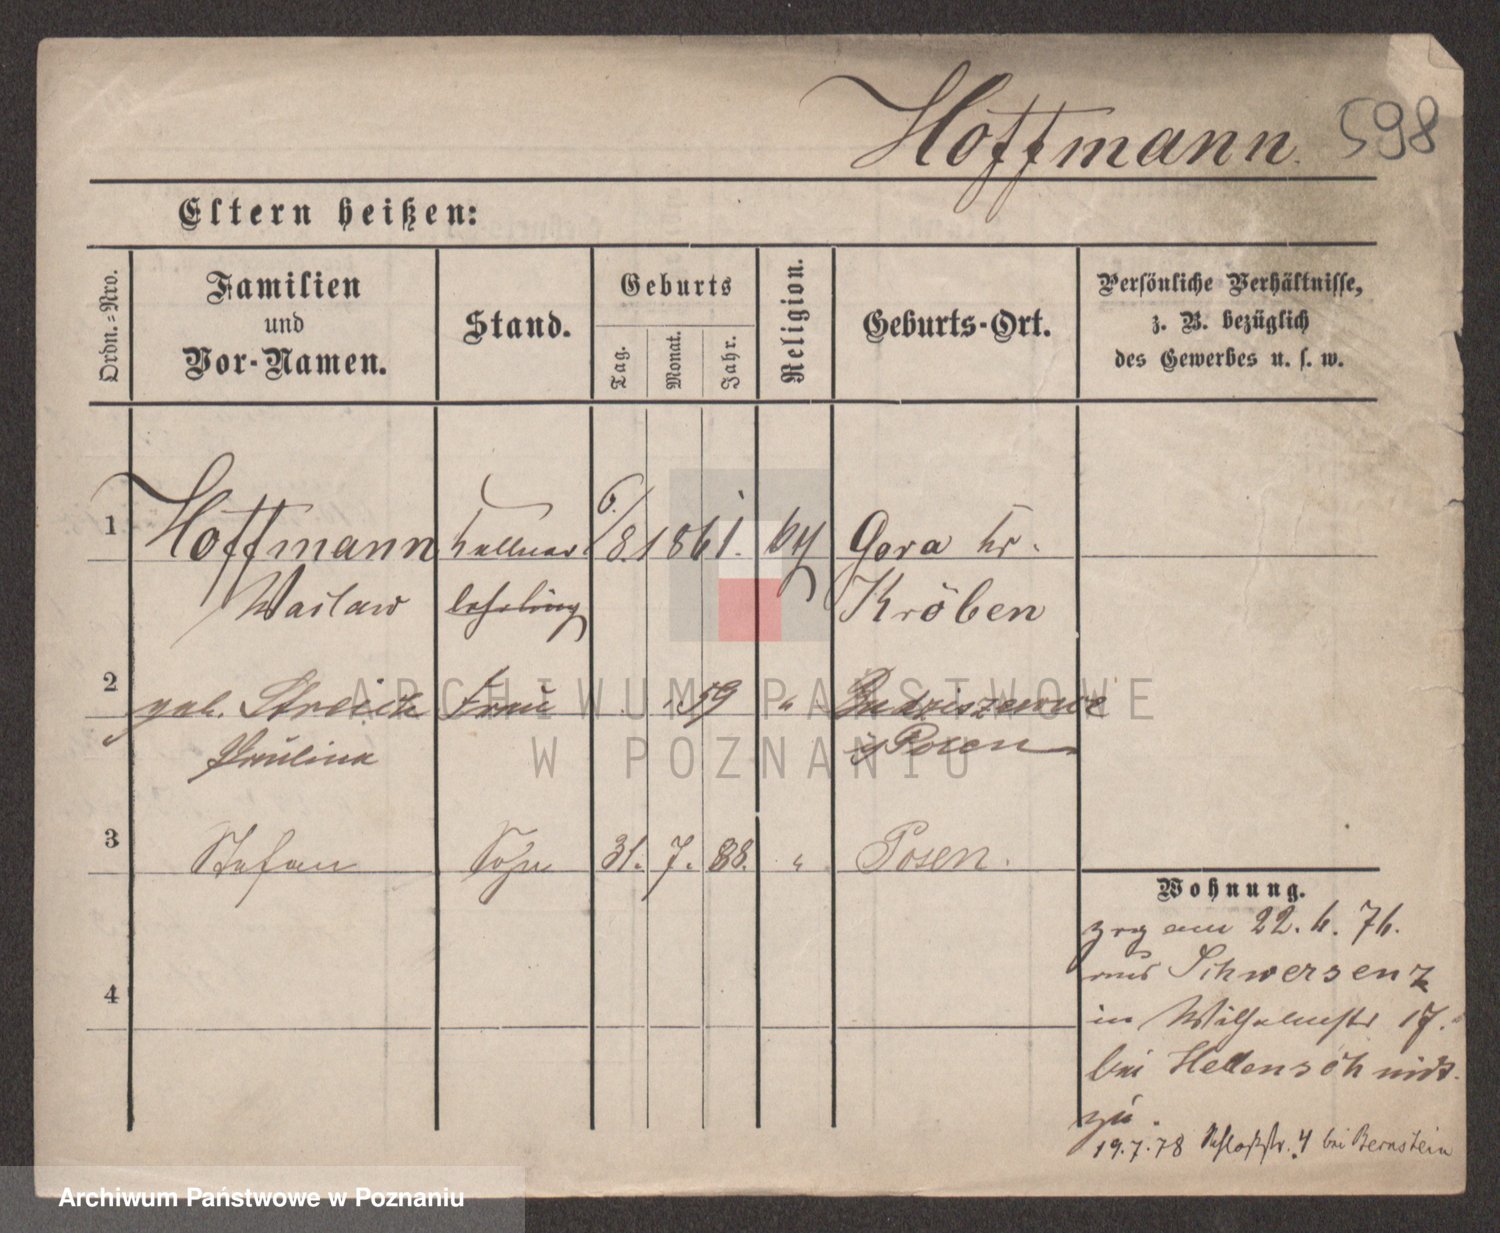 Hoffmann. 598
Eltern heißen:
Ordn.-Nro.
Familien
und
Vor-Namen.
Stand.
Geburts
Tag.
Monat.
Jahr.
Religion.
Geburts-Ort.
Persönliche Verhältnisse,
z. B. bezüglich
des Gewerbes u. s. w.
1 Hoffmann Kellner 8. 1861. Gora Kr.
Waclaw lehrling Kröben
2 geb. Streich Frau 59 " Budziszewo
Paulina Posen
3 Stefan Sohn 31. 7. 88. " Posen.
Wohnung.
zog am 22. 6. 76.
aus Schwersenz
in Wilhelmstr 17.
bei Hellenschmidt
zu.
19.7.78 Schloßstr. 4 bei Bernstein
4
ARCHIWUM PAŃSTWOWE
W POZNANIU
Archiwum Państwowe w Poznaniu